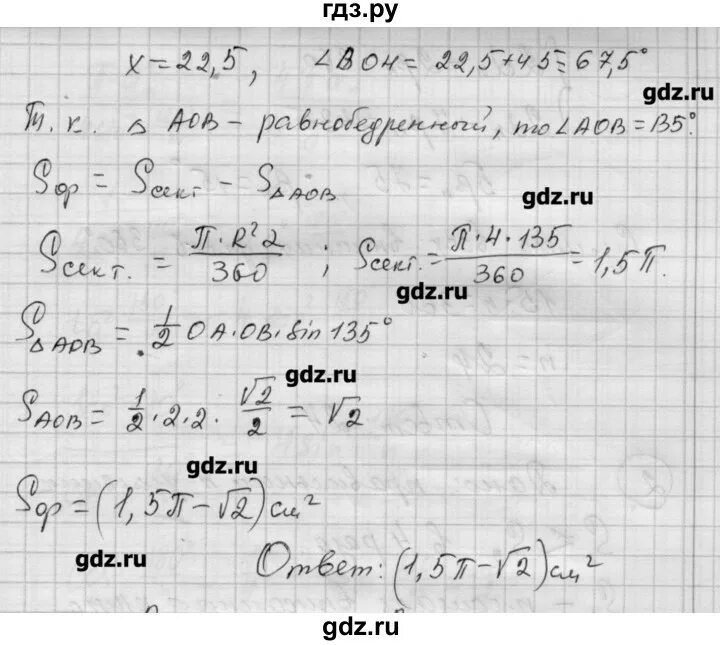 гдз.ру
x = 22,5, ∠BOH = 22,5+45=67,5°
gdz.ru
Т.к. △ AOB – равнобедренный, то ∠AOB = 135°.
Sфр = Sсект – S△AOB
gdz.ru
Sсект. = π·R²·2/360 ; Sсект. = π·4·135/360 = 1,5π.
gdz.ru
S△AOB = 1/2 OA·OB·sin 135°
gdz.ru
SAOB = 1/2·2·2·√2/2 = √2
gdz.ru
Sфр = (1,5π–√2) см²
gdz.ru
Ответ: (1,5π–√2) см²
gdz.ru